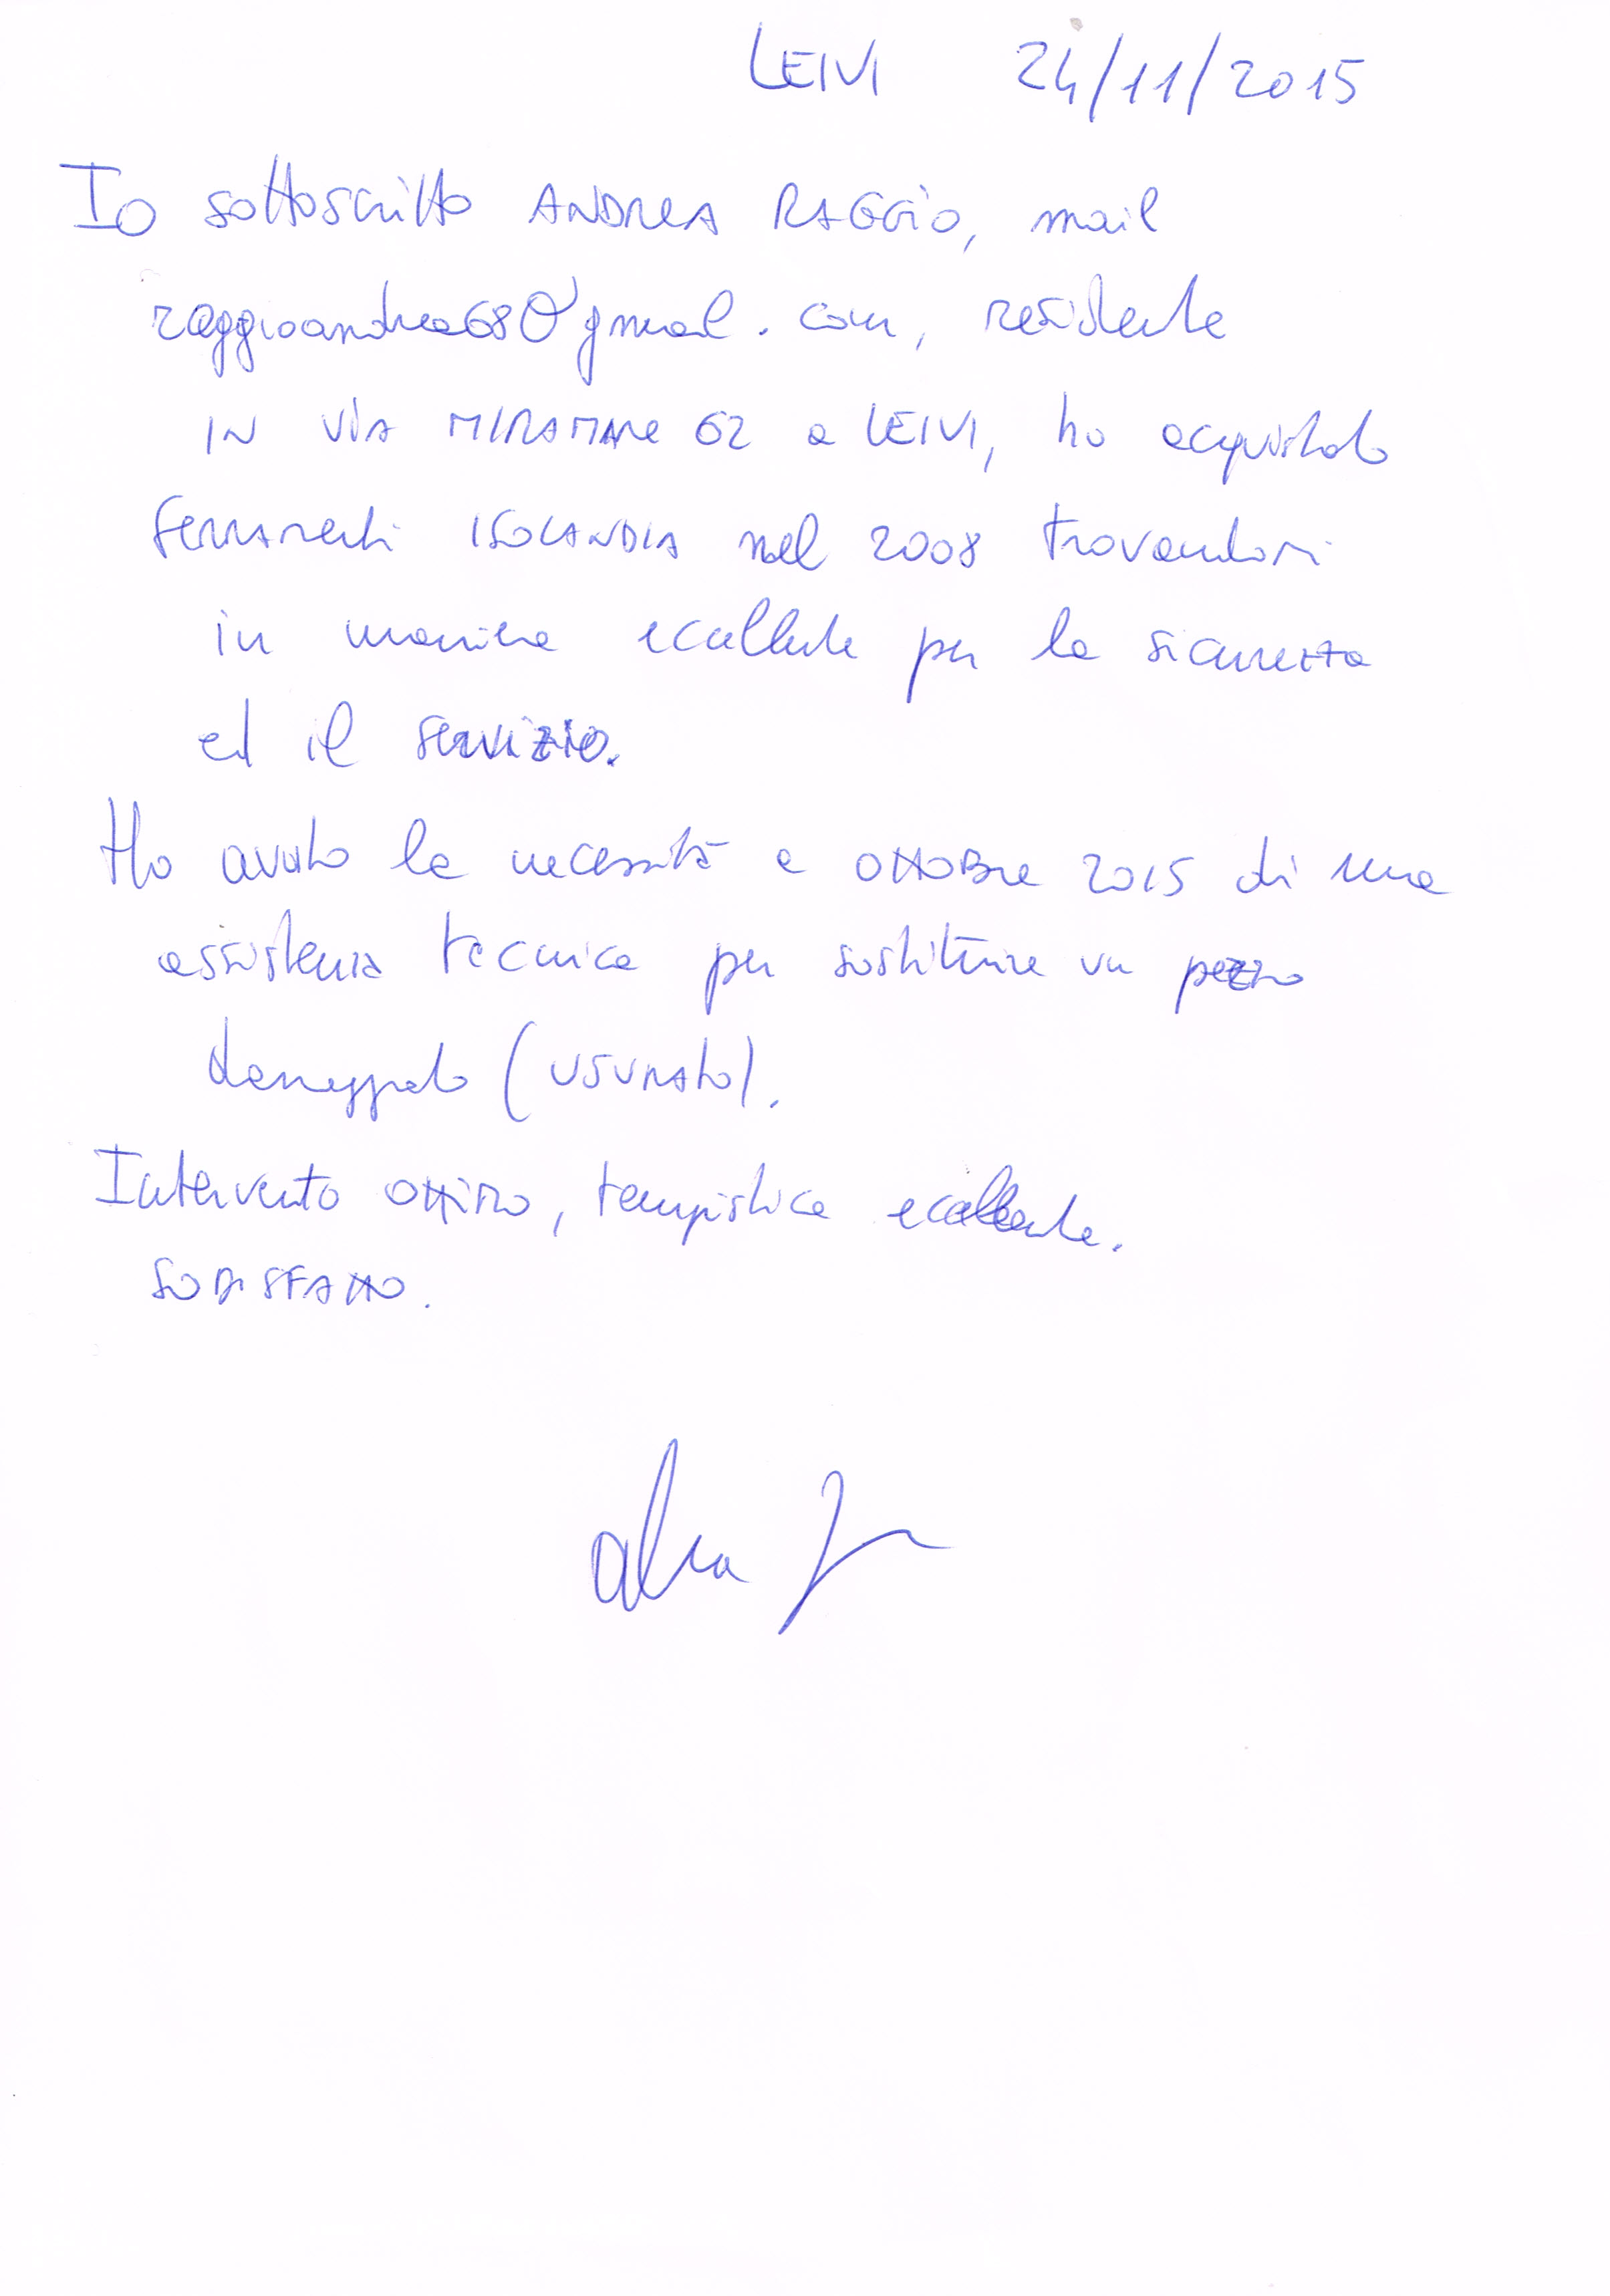 LEIVI 24/11/2015
Io sottoscritto ANDREA RAGGIO, mail
raggioandrea68@gmail.com, residente
IN VIA MIRAMARE 62 a LEIVI, ho acquistato
serramenti ISOLANDIA nel 2008 trovandomi
in maniera eccellente per la sicurezza
ed il servizio.
Ho avuto la necessità a OTTOBRE 2015 di una
assistenza tecnica per sostituire un pezzo
danneggiato (USURATO).
Intervento OTTIMO, tempistica eccellente.
SODISFATTO.